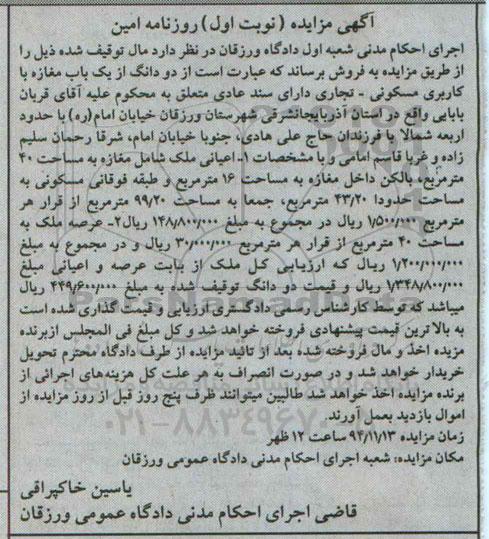 آگهی مزایده (نوبت اول) روزنامه امین
اجرای احکام مدنی شعبه اول دادگاه ورزقان در نظر دارد مال توقیف شده ذیل را
از طریق مزایده به فروش برساند که عبارت است از دو دانگ از یک باب مغازه با
کاربری مسکونی - تجاری دارای سند عادی متعلق به محکوم علیه آقای قربان
بابایی واقع در استان آذربایجانشرقی شهرستان ورزقان خیابان امام(ره) با حدود
اربعه شمالا با فرزندان حاج علی هادی، جنوبا خیابان امام، شرقا رحمان سلیم
زاده و غربا قاسم امامی و با مشخصات ۱- اعیانی ملک شامل مغازه به مساحت ۴۰
مترمربع بالکن داخل مغازه به مساحت ۱۶ مترمربع و طبقه فوقانی مسکونی به
مساحت حدودا ۴۳/۲۰ مترمربع، جمعا به مساحت ۹۹/۲۰ مترمربع از قرار هر
مترمربع ۱/۵۰۰/۰۰۰ ریال در مجموع به مبلغ ۱۴۸/۸۰۰/۰۰۰ ریال ۲- عرصه ملک به
مساحت ۴۰ مترمربع از قرار هر مترمربع ۳۰/۰۰۰/۰۰۰ ریال و در مجموع به مبلغ
۱/۲۰۰/۰۰۰/۰۰۰ ریال که ارزیابی کل ملک از بابت عرصه و اعیانی مبلغ
۱/۳۴۸/۸۰۰/۰۰۰ ریال و قیمت دو دانگ توقیف شده به مبلغ ۴۴۹/۶۰۰/۰۰۰ ریال
میباشد که توسط کارشناس رسمی دادگستری ارزیابی و قیمت گذاری شده است
به بالاترین قیمت پیشنهادی فروخته خواهد شد و کل مبلغ فی المجلس ازبرنده
مزیده اخذ و مال فروخته شده بعد از تائید مزایده از طرف دادگاه محترم تحویل
خریدار خواهد شد و در صورت انصراف به هر علت کل هزینه‌های اجرائی از
برنده مزایده اخذ خواهد شد طالبین میتوانند ظرف پنج روز قبل از روز مزایده از
اموال بازدید بعمل آورند.
زمان مزایده ۹۴/۱۱/۱۳ ساعت ۱۲ ظهر
مکان مزایده: شعبه اجرای احکام مدنی دادگاه عمومی ورزقان
یاسین خاکپراقی
قاضی اجرای احکام مدنی دادگاه عمومی ورزقان
ParsNamadData
۰۲۱-۸۸۳۴۹۶۷۰